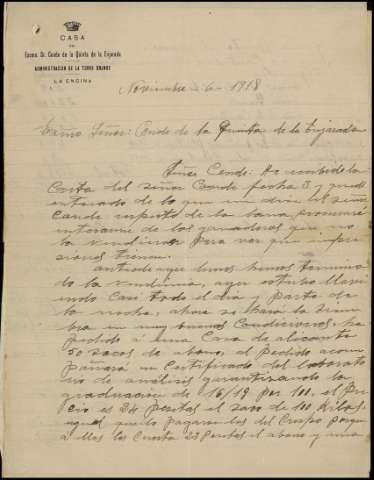 CASA
DEL
Excmo. Sr. Conde de la Quinta de la Enjarada
ADMINISTRACION DE LA TORRE GRANDE
LA ENCINA
Noviembre 6 1918
Exmo Señor: Conde de la Quinta de la Enjarada
Señor Conde: He recibido la
Carta del señor Conde fecha 3 y quedo
enterado de lo que me dice el señor
Conde respecto de la lana, procuraré
enterarme de los ganaderos que no
la vendieron para ver que impre
siones tienen.
antiode ayer lunes hemos termina
do la vendimia, ayer estubo llovi
endo Casi todo el dia y parte de
la noche, ahora se hará la siem
bra en muy buenas Condiciones, he
pedido á una Casa de alicante
50 sacos de abono, el pedido acom
pañará un Certificado del laborato
rio de análisis garantizando la
graduación de 16/18 por 100, el Pre
cio es 24 pesetas el saco de 100 Kilos,
aquí puedo pagarselos del Crespo porque
á Mas les Cuesta 23 Pesetas el abono y una